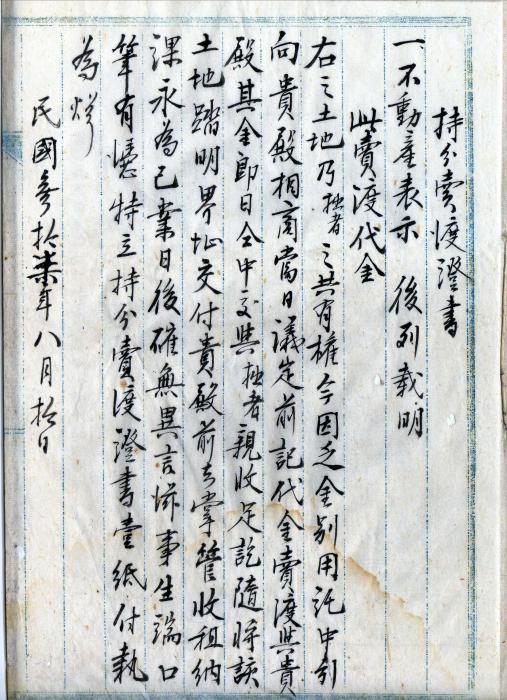 持分賣渡證書
一不動產表示 後列載明
此賣渡代金
右之土地乃拙者之共有權今因乏金別用託中引
向貴殿相商當日議定前記代金賣渡與貴
殿其金即日仝中交與拙者親收足訖隨將該
土地踏明界址交付貴殿前去掌管收租納
課永為己業日後確無異言滋事生端口
筆有憑特立持分賣渡證書壹紙付執
為炤
民國參拾柒年八月拾日